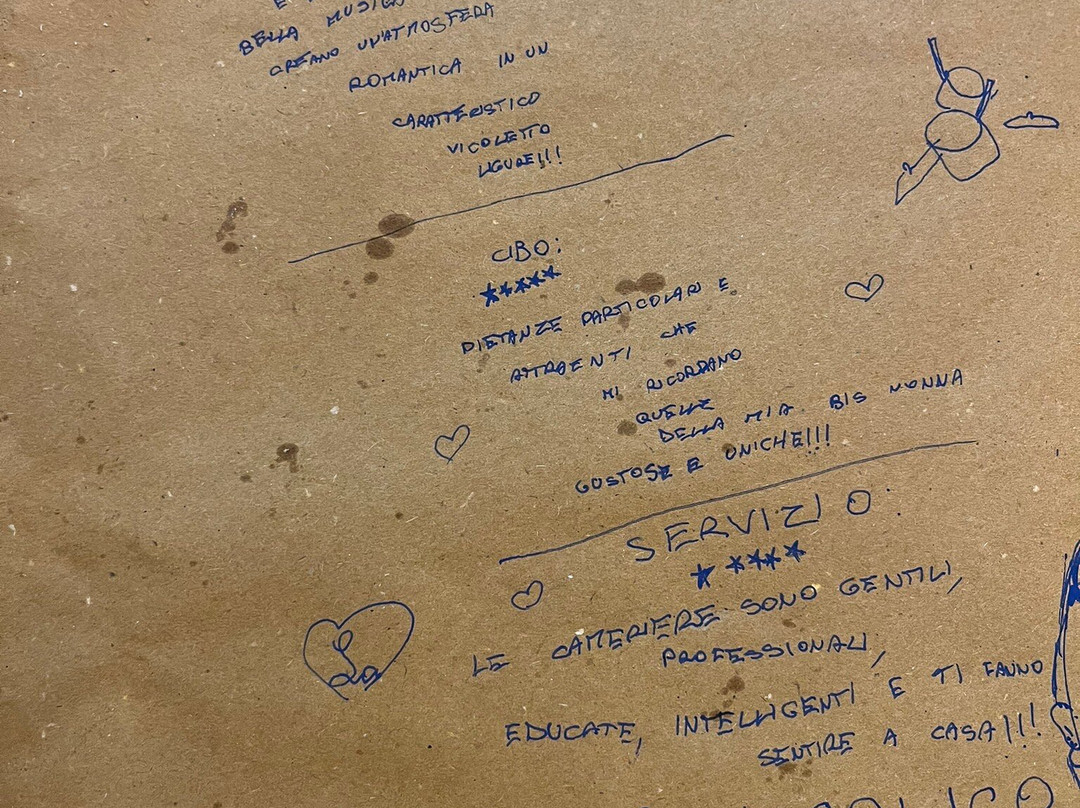 BELLA MUSICA
CREANO UN'ATMOSFERA
ROMANTICA IN UN
CARATTERISTICO
VICOLETTO
LIGURE!!!
CIBO:
★★★★★
PIETANZE PARTICOLARI E
ATTRAENTI CHE
MI RICORDANO
QUELLE
DELLA MIA BIS NONNA
GUSTOSE E UNICHE!!!
SERVIZIO:
★★★★★
LE CAMERIERE SONO GENTILI,
PROFESSIONALI,
EDUCATE, INTELLIGENTI E TI FANNO
SENTIRE A CASA!!!